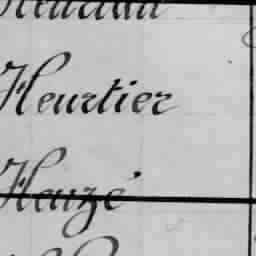 Heurtier
Heuzé